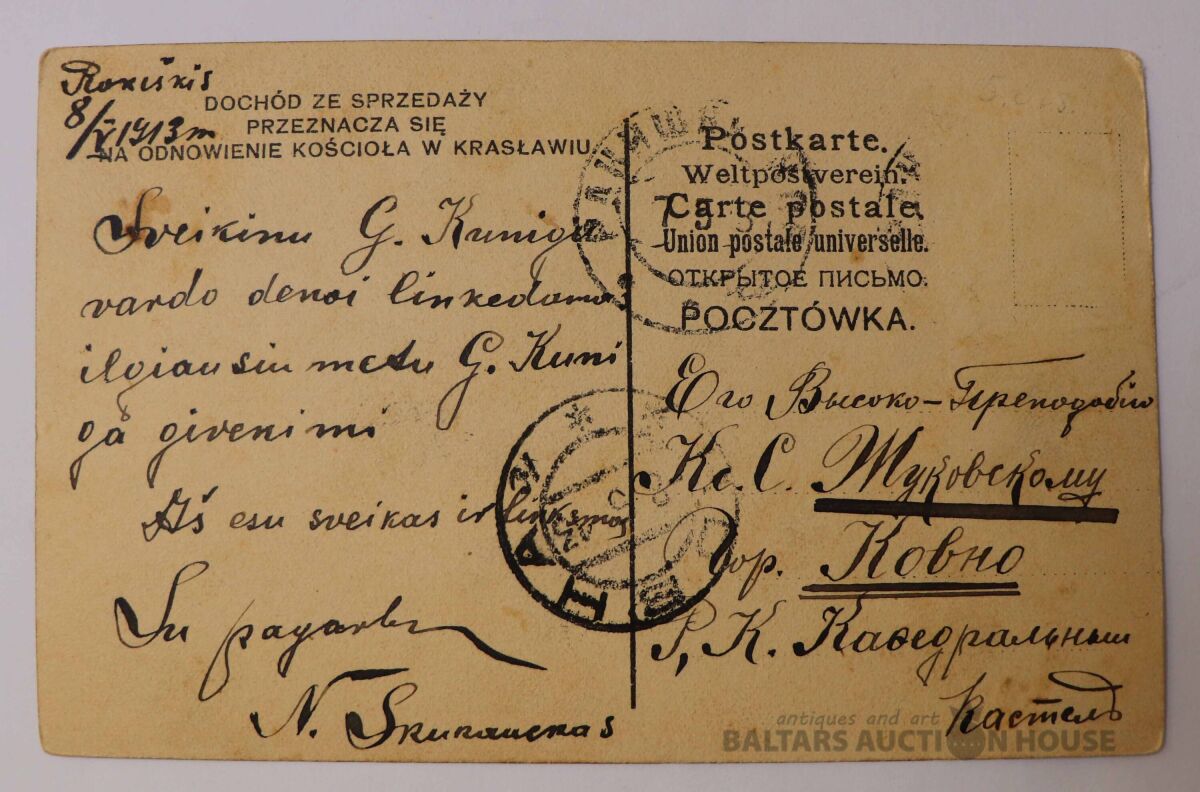 Rokiškis
8/V 1913 m
DOCHÓD ZE SPRZEDAŻY
PRZEZNACZA SIĘ
NA ODNOWIENIE KOŚCIOŁA W KRASŁAWIU.
Sveikinu G. Kunigu
vardo denoi linkedamas
ilgiausiu metu G. Kuni
go givenimi
Aš esu sveikas ir linksmas
Su pagarba
N. Skukauckas
Postkarte.
Weltpostverein.
Carte postale.
Union postale universelle.
ОТКРЫТОЕ ПИСЬМО.
POCZTÓWKA.
Его Высоко-Преподобію
Кс. С. Жуковскому
гор. Ковно
Р. К. Кафедральный
Костелъ
КОВНА
antiques and art
BALTARS AUCTION HOUSE